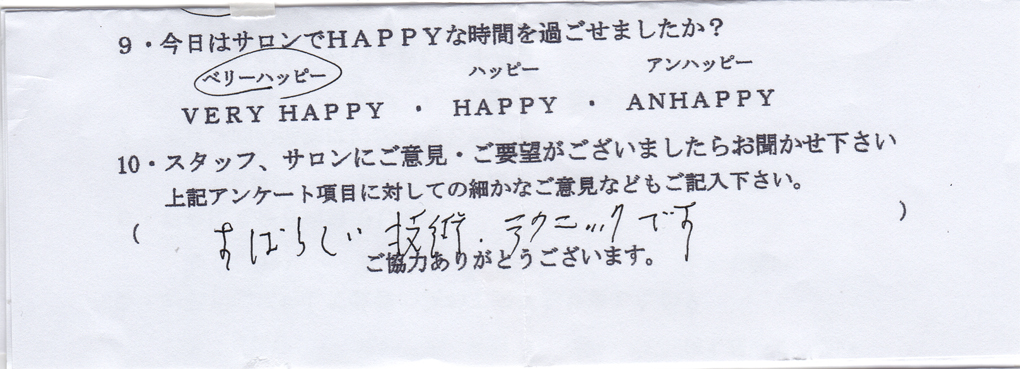 9・今日はサロンでHAPPYな時間を過ごせましたか？
ベリーハッピー ハッピー アンハッピー
VERY HAPPY ・ HAPPY ・ ANHAPPY
10・スタッフ、サロンにご意見・ご要望がございましたらお聞かせ下さい
上記アンケート項目に対しての細かなご意見などもご記入下さい。
( すばらしい 技術．テクニックです )
ご協力ありがとうございます。